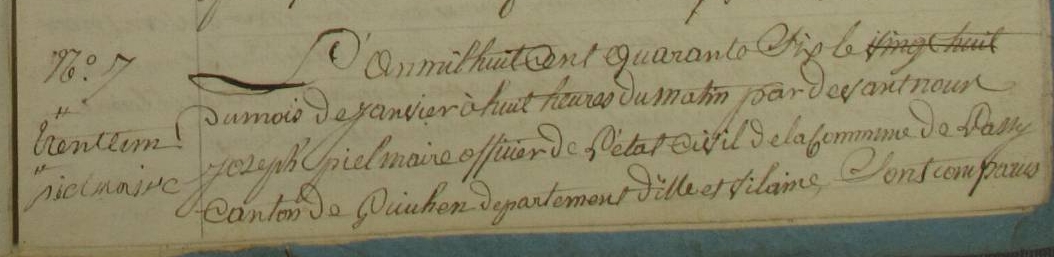 N.º 7
L'an mil huit cent quarante Six le vingt huit
" du mois de janvier à huit heures du matin par devant nous
trent un! joseph piel maire officier de l'état civil de la commune de
" piel maire canton de Guichen departement d'ille et vilaine, Sont comparus